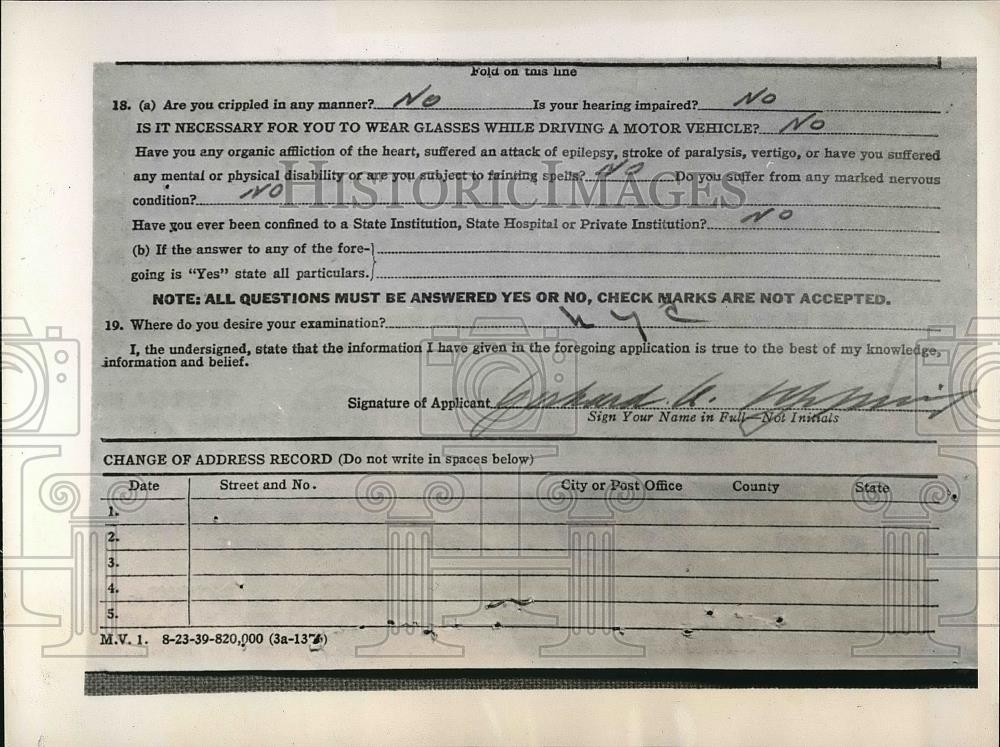 Fold on this line
18. (a) Are you crippled in any manner? No Is your hearing impaired? No
IS IT NECESSARY FOR YOU TO WEAR GLASSES WHILE DRIVING A MOTOR VEHICLE? No
Have you any organic affliction of the heart, suffered an attack of epilepsy, stroke of paralysis, vertigo, or have you suffered
any mental or physical disability or are you subject to fainting spells? No Do you suffer from any marked nervous
condition? No
HISTORIC IMAGES
Have you ever been confined to a State Institution, State Hospital or Private Institution? No
(b) If the answer to any of the fore-}
going is "Yes" state all particulars.}
NOTE: ALL QUESTIONS MUST BE ANSWERED YES OR NO, CHECK MARKS ARE NOT ACCEPTED.
19. Where do you desire your examination? NYC
I, the undersigned, state that the information I have given in the foregoing application is true to the best of my knowledge,
information and belief.
Signature of Applicant Gerhard A.
Sign Your Name in Full—Not Initials
CHANGE OF ADDRESS RECORD (Do not write in spaces below)
Date Street and No. City or Post Office County State
1.
2.
3.
4.
5.
M.V. 1. 8-23-39-820,000 (3a-1376)